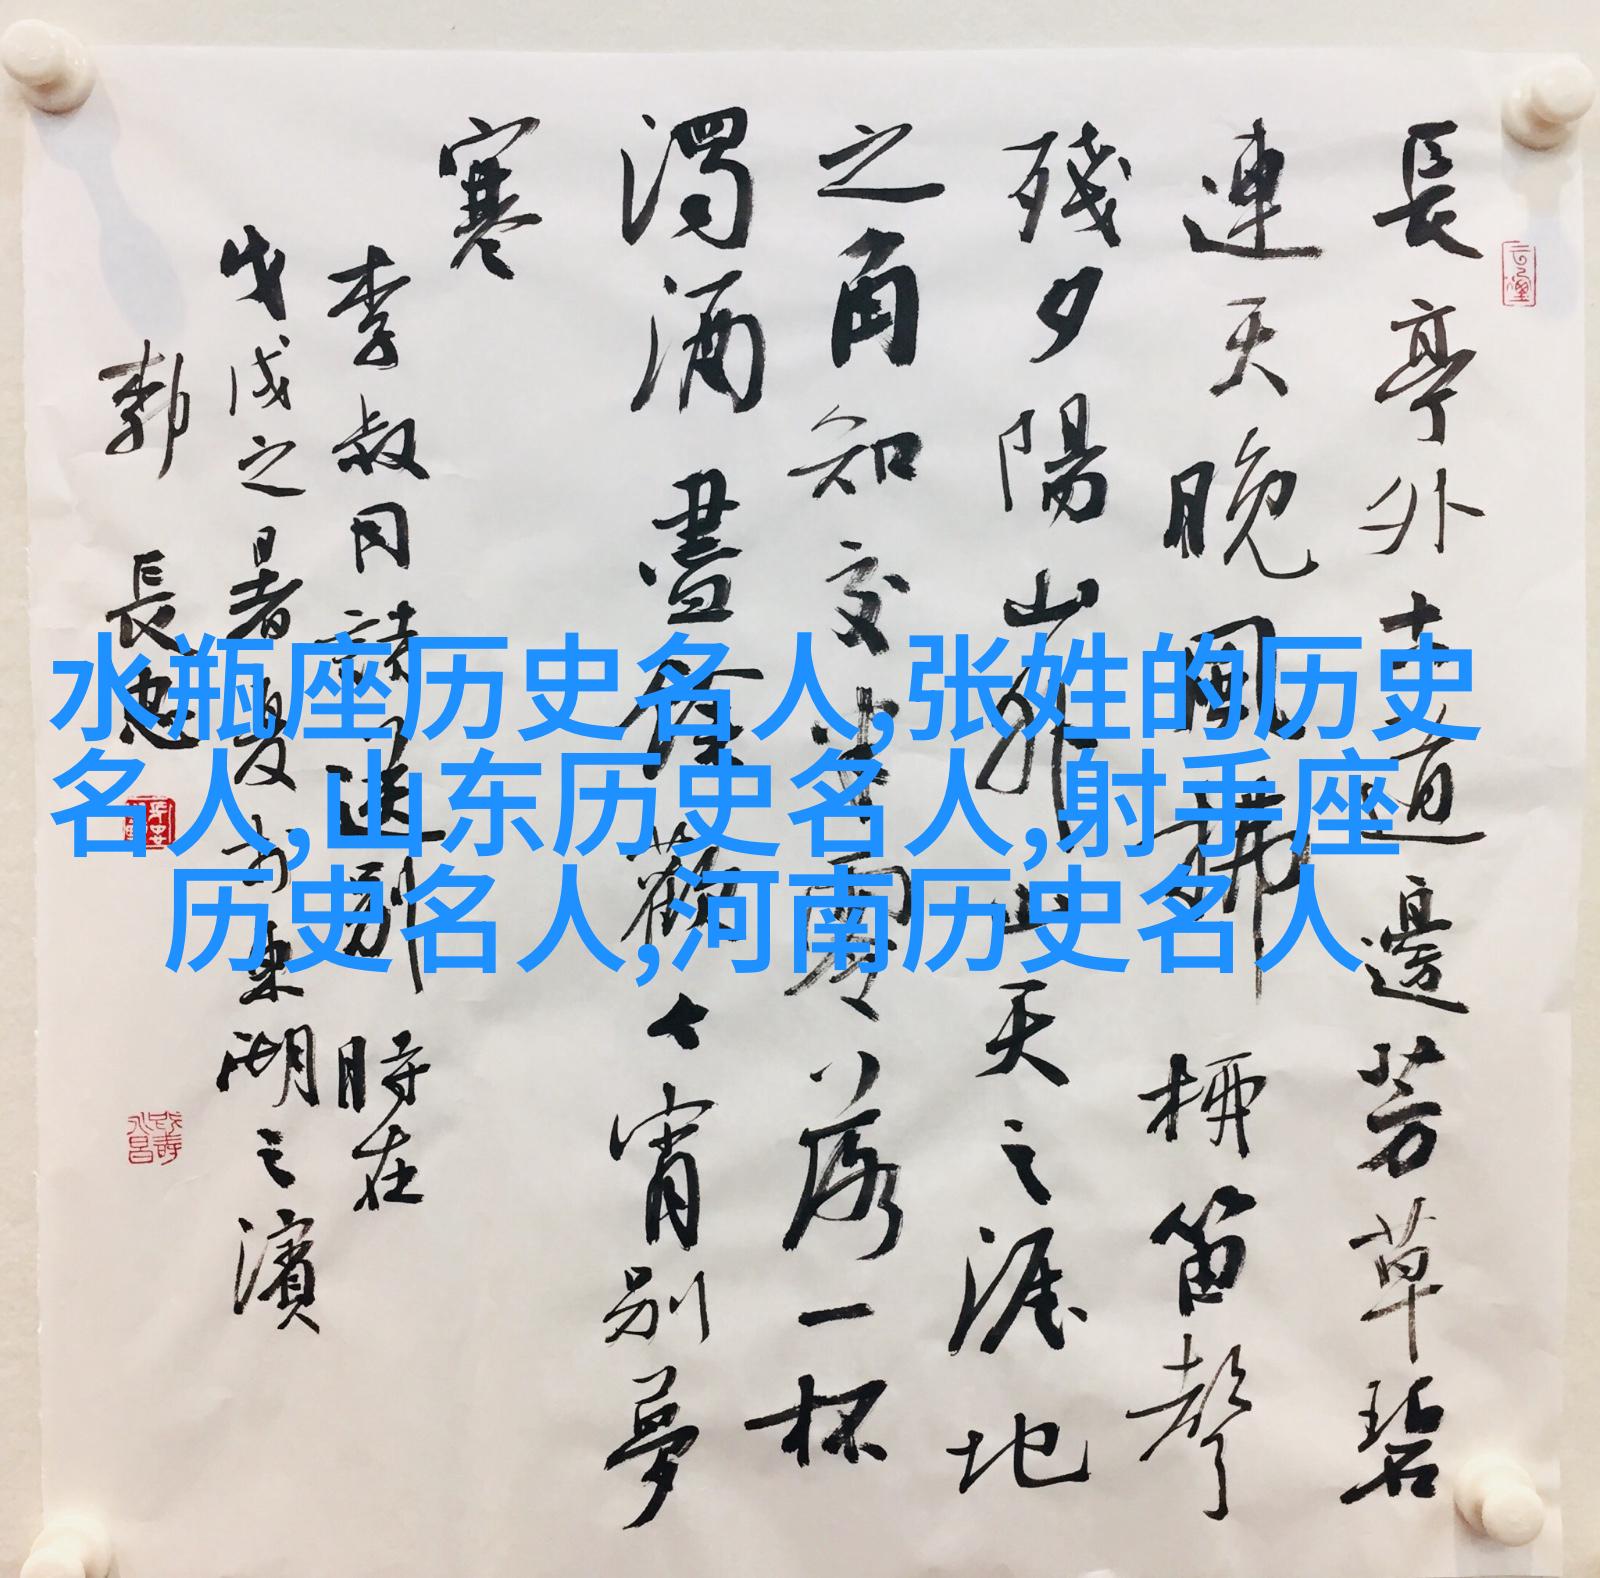 長亭外古道邊芳草碧
連天晚風拂柳笛聲
殘夕陽山外山天之涯地
之角知交半零落一杯
濁酒盡餘歡今宵別夢
寒
李叔同詩送別 時在
戊戌之暑夏東湖之濱
長
水瓶座历史名人,张姓的历史
名人,山东历史名人,射手座
历史名人,河南历史名人